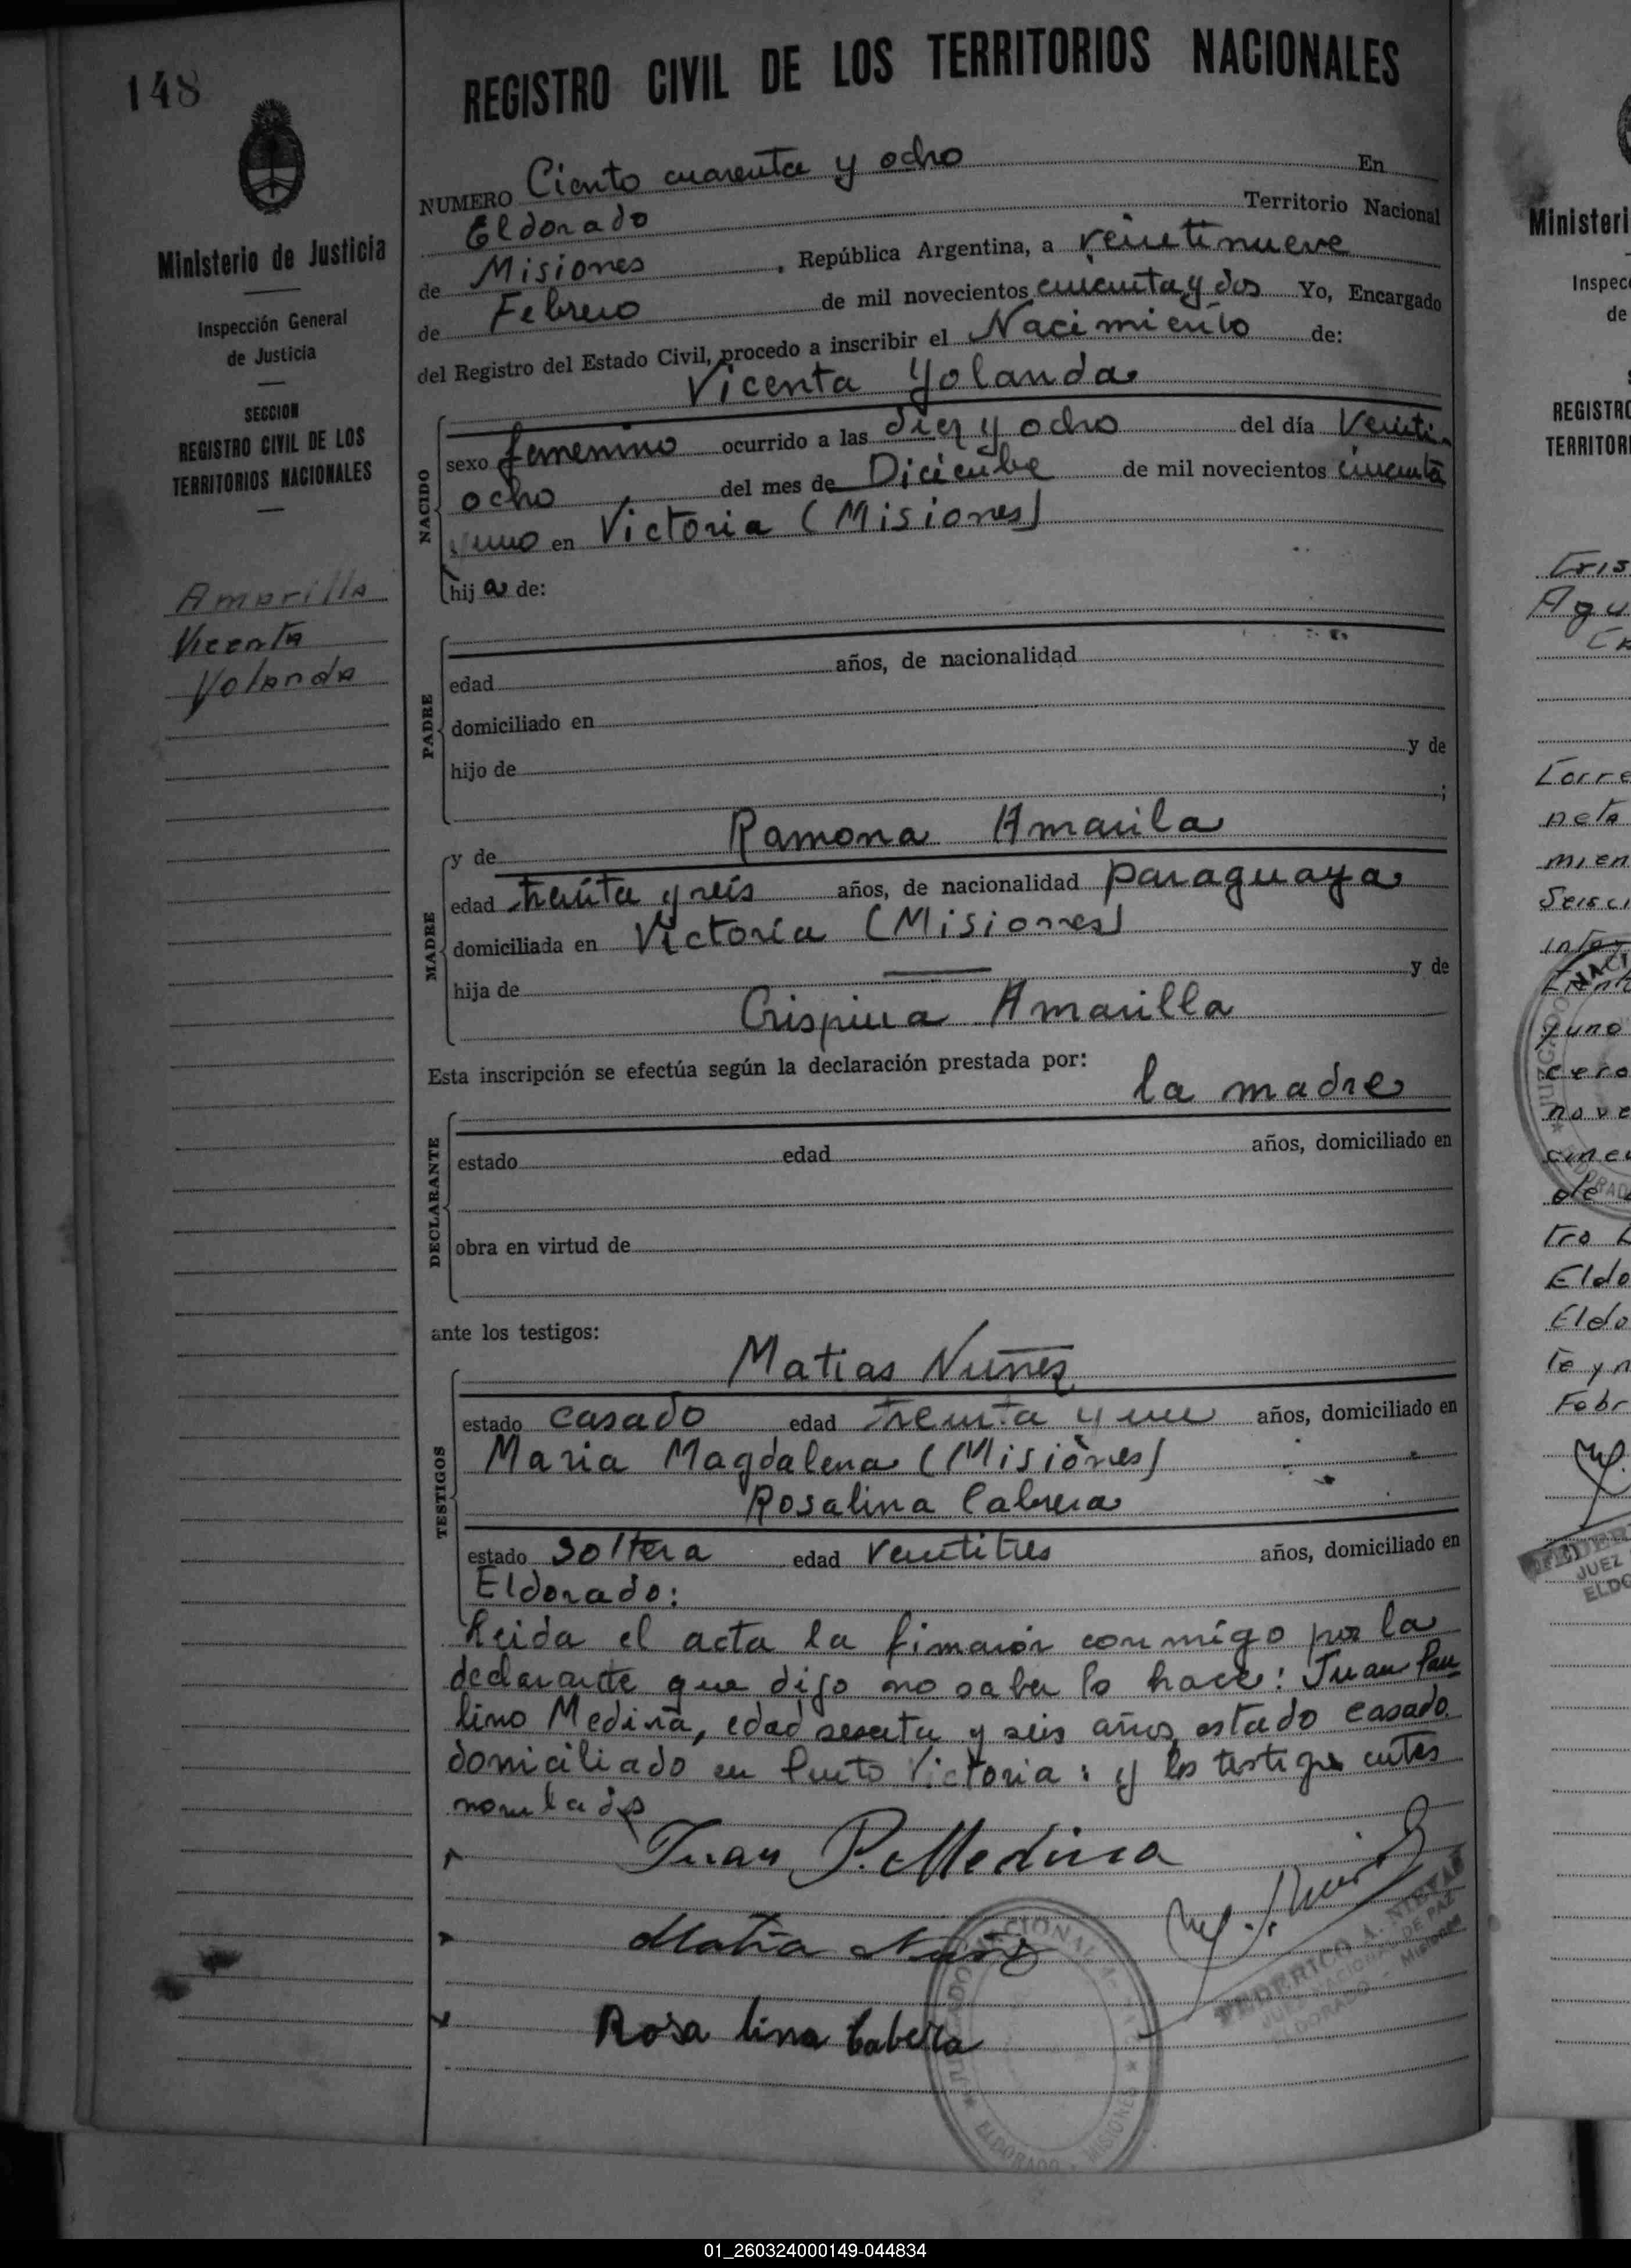 148
REGISTRO CIVIL DE LOS TERRITORIOS NACIONALES
Ministerio de Justicia
Inspección General
de Justicia
SECCION
REGISTRO CIVIL DE LOS
TERRITORIOS NACIONALES
Amarilla
Vicenta
Yolanda
NUMERO Ciento cuarenta y ocho En
Eldorado Territorio Nacional
de Misiones, República Argentina, a veintinueve
de Febrero de mil novecientos cincuenta y dos Yo, Encargado
del Registro del Estado Civil, procedo a inscribir el Nacimiento de:
Vicenta Yolanda
NACIDO
sexo femenino ocurrido a las diez y ocho del día Veinti
ocho, del mes de Diciembre de mil novecientos cincuenta
y uno en Victoria (Misiones)
hija de:
PADRE
edad años, de nacionalidad
domiciliado en
hijo de y de
;
MADRE
y de Ramona Amarila
edad treinta y seis años, de nacionalidad paraguaya
domiciliada en Victoria (Misiones)
hija de y de
Crispina Amarilla
Esta inscripción se efectúa según la declaración prestada por:
la madre
DECLARANTE
estado edad años, domiciliado en
obra en virtud de
ante los testigos:
TESTIGOS
Matias Nuñez
estado casado edad treinta y un años, domiciliado en
Maria Magdalena (Misiones)
Rosalina Cabrera
estado Soltera edad veintitres años, domiciliado en
Eldorado:
Leida el acta la firmaron conmigo por la
declarante que dijo no saber lo hace: Juan Pau
lino Medina, edad sesenta y seis años, estado casado
domiciliado en Puerto Victoria: y los testigos antes
nombrados
Juan P. Medina
Matia Nuñez
Rosa lina Cabera
FEDERICO A. NIEVAS
JUEZ NACIONAL DE PAZ
ELDORADO - Misiones
JUZGADO NACIONAL DE PAZ
ELDORADO - MISIONES
Ministeri
Inspec
de
REGISTRO
TERRITORI
Cris
Agu
Corre
neta
mien
Seisci
y uno
cero
nove
cincu
de
tro
Eldo
Eldo
te y n
Febr
JUEZ
ELDO
01_260324000149-044834